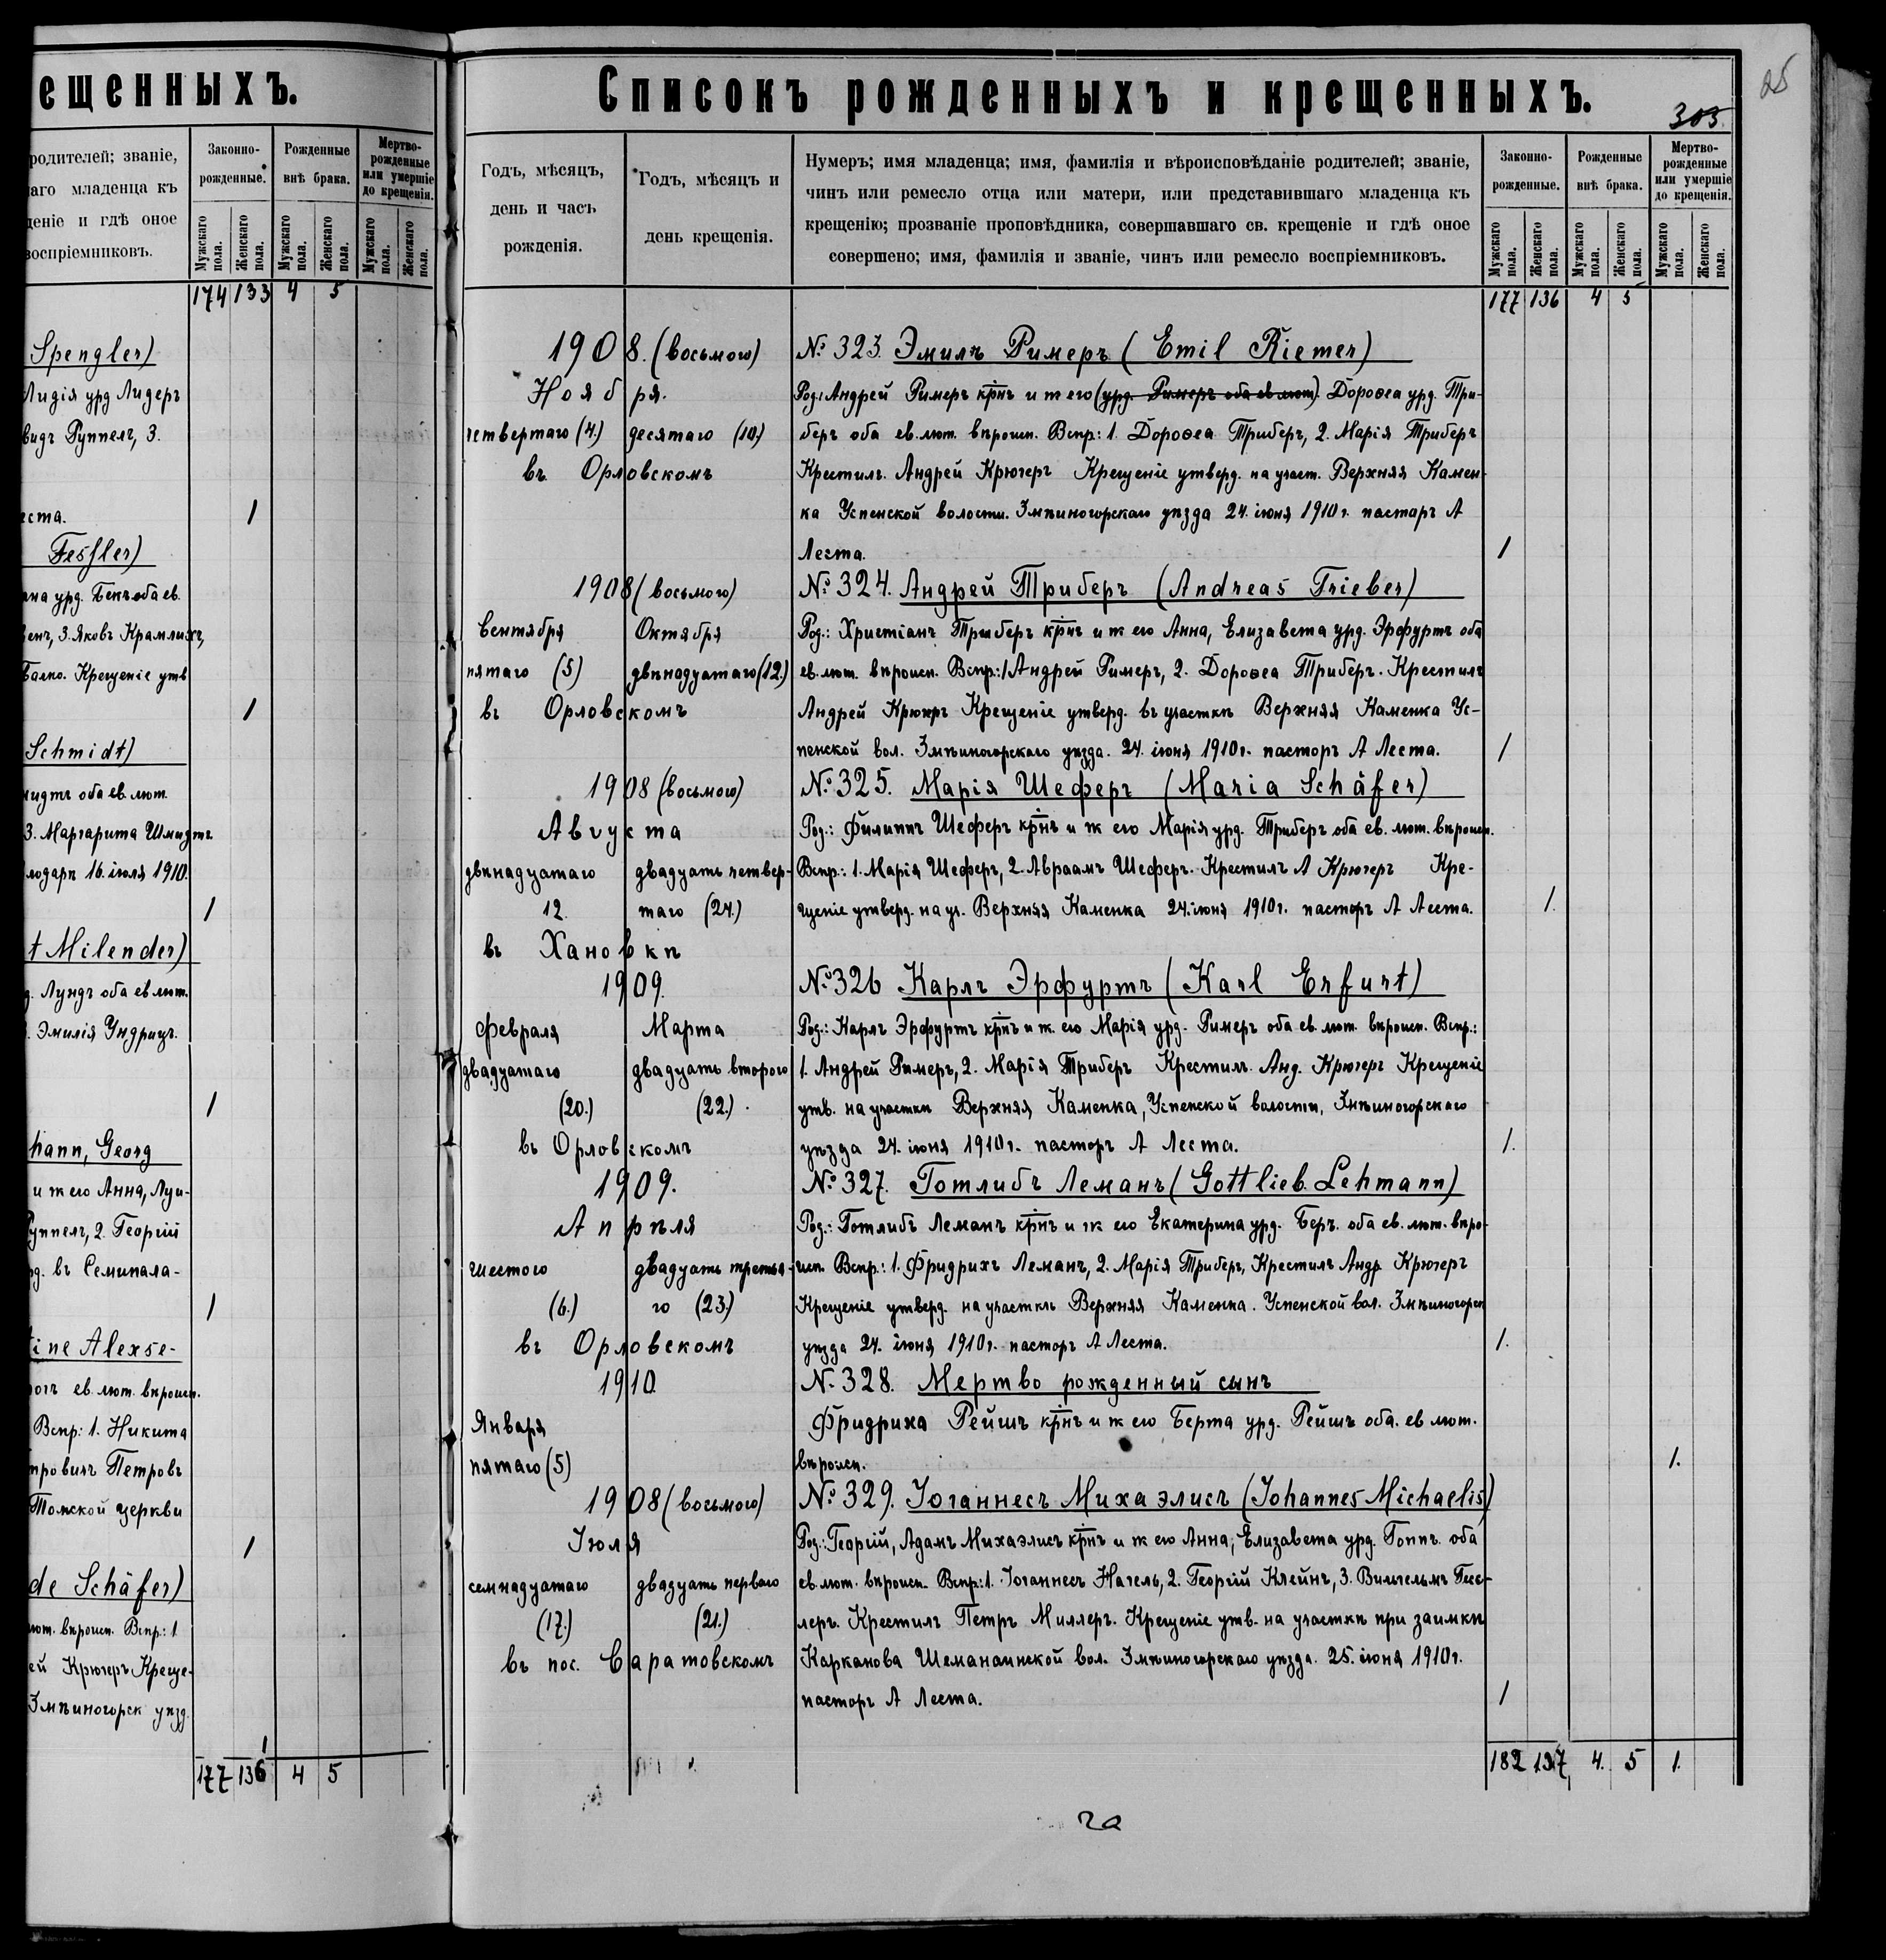 ещенныхъ.
родителей; званіе,
аго младенца къ
деніе и гдѣ оное
воспріемниковъ.
Законно-
рожденные.
Рожденные
внѣ брака.
Мертво-
рожденные
или умершіе
до крещенія.
Мужскаго пола.
Женскаго пола.
Мужскаго пола.
Женскаго пола.
Мужскаго пола.
Женскаго пола.
174 133 4 5
Spengler)
Лидія урд Лидеръ
видъ Руппелъ, 3.
еста. 1
Fessler)
ана урд. Бекъ оба ев.
енъ, 3. Яковъ Крамлихъ,
Балко. Крещеніе утв
1
Schmidt)
мидтъ оба ев. лют.
3. Маргарита Шмидтъ
лодарѣ 16. іюля 1910.
1
t Milender)
д. Лундъ оба ев лют.
. Эмилія Ундрицъ.
1
hann, Georg
и ж его Анна, Луи-
Руппелъ, 2. Георгій
рд. въ Семипала-
1
tine Alexse-
ют. ев. лют. вѣроисп.
Вспр: 1. Никита
тровичъ Петровъ
Томской церкви
1
de Schäfer)
лют. вѣроисп. Вспр: 1
ей Крюгеръ Креще-
Змѣиногорск уѣзд.
1
177 136 4 5
25
Списокъ рожденныхъ и крещенныхъ.
303.
Годъ, мѣсяцъ,
день и часъ
рожденія.
Годъ, мѣсяцъ и
день крещенія.
Нумеръ; имя младенца; имя, фамилія и вѣроисповѣданіе родителей; званіе,
чинъ или ремесло отца или матери, или представившаго младенца къ
крещенію; прозваніе проповѣдника, совершавшаго св. крещеніе и гдѣ оное
совершено; имя, фамилія и званіе, чинъ или ремесло воспріемниковъ.
Законно-
рожденные.
Рожденные
внѣ брака.
Мертво-
рожденные
или умершіе
до крещенія.
Мужскаго пола.
Женскаго пола.
Мужскаго пола.
Женскаго пола.
Мужскаго пола.
Женскаго пола.
177 136 4 5
1908. (восьмого) № 323. Эмилъ Римеръ (Emil Riemer)
Ноября. Род.: Андрей Римеръ крнъ и ж его (урд. Римеръ оба ев лют). Доровеа урд. Три-
четвертаго (4.) десятаго (10.) беръ оба ев. лют. вѣроисп. Вспр: 1. Доровеа Триберъ, 2. Марія Триберъ
въ Орловскомъ Крестилъ. Андрей Крюгеръ Крещеніе утверд. на участ. Верхняя Камен-
ка Успенской волости. Змѣиногорскаго уѣзда 24. іюня 1910 г. пастаръ А
Леста. 1
1908 (восьмого) № 324. Андрей Триберъ (Andreas Trieber)
Сентября Октября Род.: Христіанъ Триберъ крнъ и ж его Анна, Елизавета урд. Эрфуртъ оба
пятаго (5) двѣнадцатаго (12.) ев. лют. вѣроисп. Вспр: 1 Андрей Римеръ, 2. Доровеа Триберъ. Крестилъ
въ Орловскомъ Андрей Крюгеръ Крещеніе утверд. въ участкѣ Верхняя Каменка Ус-
пенской вол. Змѣиногорскаго уѣзда. 24. іюня 1910 г. пасторъ А Леста. 1
1908 (восьмого) № 325. Марія Шеферъ (Maria Schäfer)
Августа Род.: Филиппъ Шеферъ крнъ и ж его Марія урд. Триберъ оба ев. лют. вѣроисп.
двѣнадцатаго двадцать четвер- Вспр: 1. Марія Шеферъ, 2. Авраамъ Шеферъ. Крестилъ А Крюгеръ Кре-
12. таго (24.) щеніе утверд. на уч. Верхняя Каменка 24. іюня 1910 г. пасторъ А Леста. 1.
въ Хановкѣ
1909. № 326 Карлъ Эрфуртъ (Karl Erfurt)
Февраля Марта Род.: Карлъ Эрфуртъ крнъ и ж. его Марія урд. Римеръ оба ев. лют. вѣроисп. Вспр.:
двадцатаго двадцать второго 1. Андрей Римеръ, 2. Марія Триберъ Крестилъ. Анд. Крюгеръ Крещеніе
(20.) (22.) утв. на участкѣ Верхняя Каменка, Успенской волости, Змѣиногорскаго
въ Орловскомъ уѣзда 24. іюня 1910 г. пасторъ А Леста. 1.
1909. № 327. Готлибъ Леманъ (Gottlieb Lehmann)
Апрѣля Род.: Готлибъ Леманъ крнъ и ж его Екатерина урд. Беръ. оба ев. лют. вѣро-
шестого двадцать третья- исп. Вспр: 1. Фридрихъ Леманъ, 2. Марія Триберъ, Крестилъ Андр. Крюгеръ
(6.) го (23.) Крещеніе утверд. на участкѣ Верхняя Каменка. Успенской вол. Змѣиногорск
въ Орловскомъ уѣзда 24. іюня 1910 г. пасторъ А Леста. 1.
1910. № 328. Мертво рожденный сынъ
Января Фридриха Рейшъ крнъ и ж его Берта урд. Рейшъ оба. ев лют.
пятаго (5) вѣроисп. 1.
1908 (восьмого) № 329. Іоганнесъ Михаэлисъ (Johannes Michaelis)
Іюля Род: Георгій, Адамъ Михаэлисъ крнъ и ж его Анна, Елизавета урд. Гоппъ. оба
семнадцатаго двадцать перваго ев. лют. вѣроисп. Вспр: 1. Іоганнесъ Нагель, 2. Георгій Клейнъ, 3. Вилгельмъ Гес-
(17.) (21.) леръ. Крестилъ Петръ Миллеръ. Крещеніе утв. на участкѣ при заимкѣ
въ пос. Саратовскомъ Карканова Шеманаинской вол. Змѣиногорскаго уѣзда. 25. іюня 1910 г.
пасторъ А Леста. 1
182 137 4. 5 1.